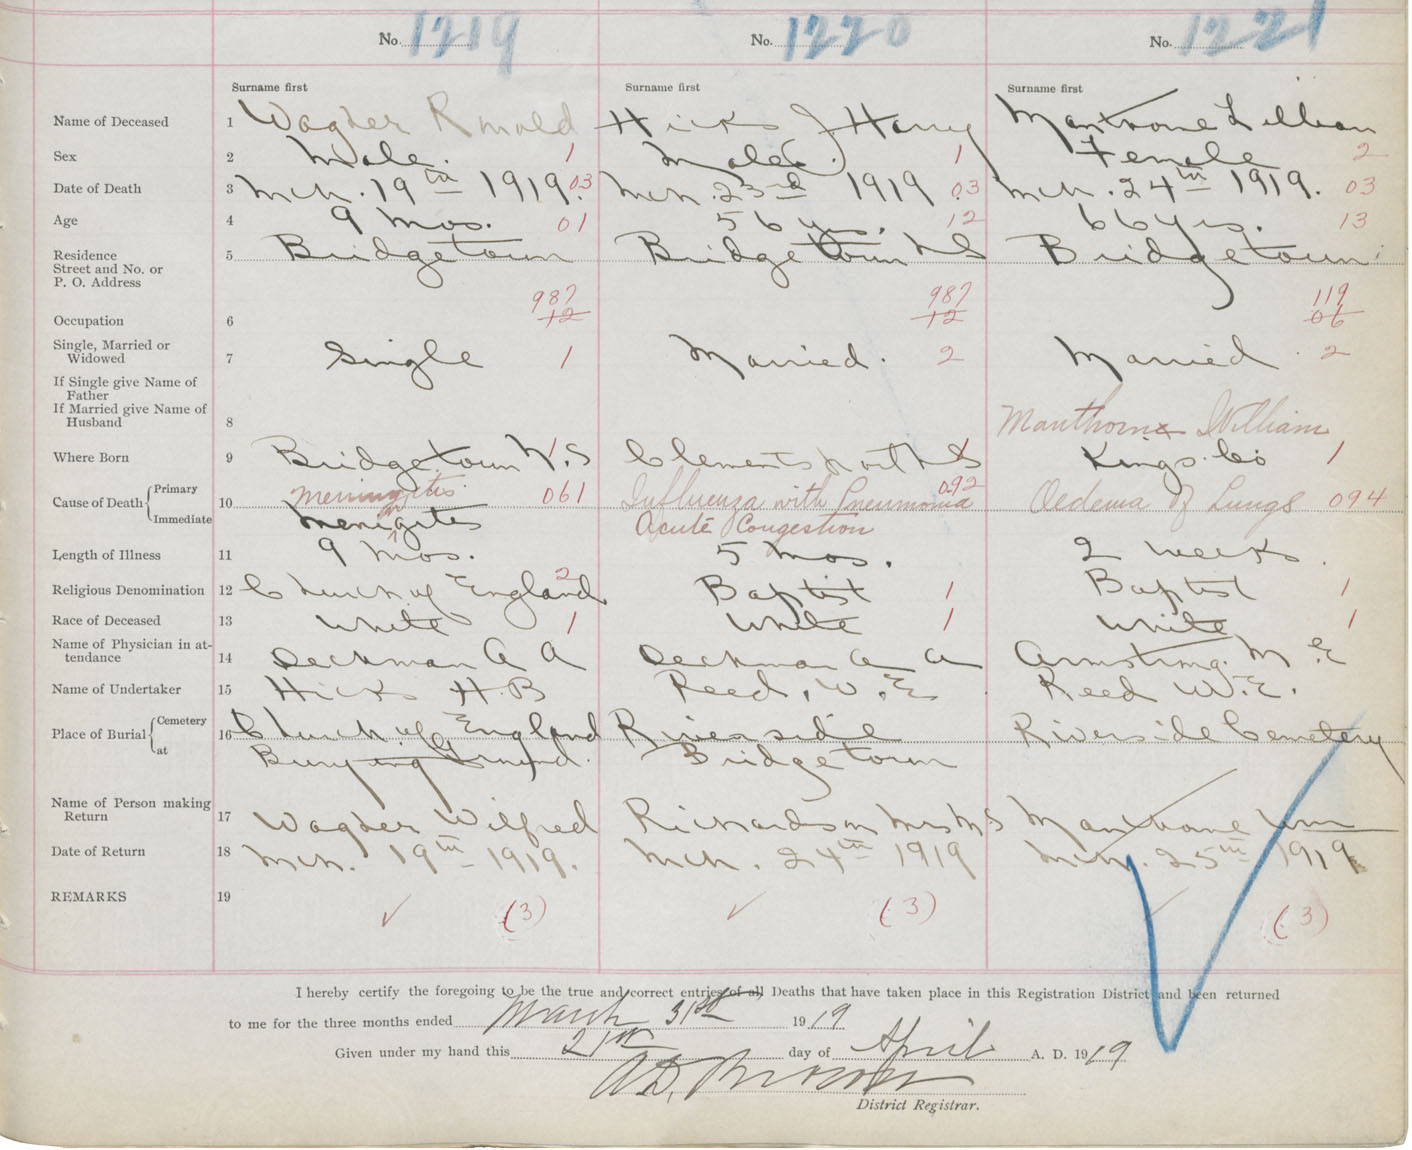 No. 1219 No. 1220 No. 1221
Surname first Surname first Surname first
Name of Deceased 1 Wagner Hicks J. Harry Manthorne Lillian
Sex 2 Male. 1 Male. 1 Female 2
Date of Death 3 Mch. 19th 1919. 03 Mch. 23rd 1919 03 Mch. 24th 1919. 03
Age 4 9 mos. 01 56 yrs. 12 66 yrs. 13
Residence
Street and No. or
P. O. Address 5 Bridgetown Bridgetown N S Bridgetown
987 987 119
Occupation 6 12 12 06
Single, Married or
Widowed 7 Single 1 Married. 2 Married. 2
If Single give Name of
Father
If Married give Name of
Husband 8 Manthorne William
Where Born 9 Bridgetown N. S 1 Clementsport N S 1 Kings. Co 1
Cause of Death Primary Meningitis 061 Influenza with Pneumonia 092 Oedema of Lungs 094
Immediate 10 Menigites Acute Congestion
Length of Illness 11 9 mos. 5 mos. 2 weeks.
Religious Denomination 12 Church of England 2 Baptist 1 Baptist 1
Race of Deceased 13 White 1 White 1 White 1
Name of Physician in at-
tendance 14 Deckman A A Deckman A A Armstrong. M. E
Name of Undertaker 15 Hicks H. B Reed, W. E Reed W. E.
Place of Burial Cemetery 16 Church of England Riverside Riverside Cemetery
at Burying Ground. Bridgetown
Name of Person making
Return 17 Wagner Wilfred Richardson Mrs M S Manthorne Wm
Date of Return 18 Mch. 19th 1919. Mch. 24th 1919 Mch. 25th 1919
REMARKS 19 (3) (3) (3)
I hereby certify the foregoing to be the true and correct entries of all Deaths that have taken place in this Registration District and been returned
to me for the three months ended March 31st 1919
Given under my hand this 21st day of April A. D. 1919
A. D. Brown
District Registrar.